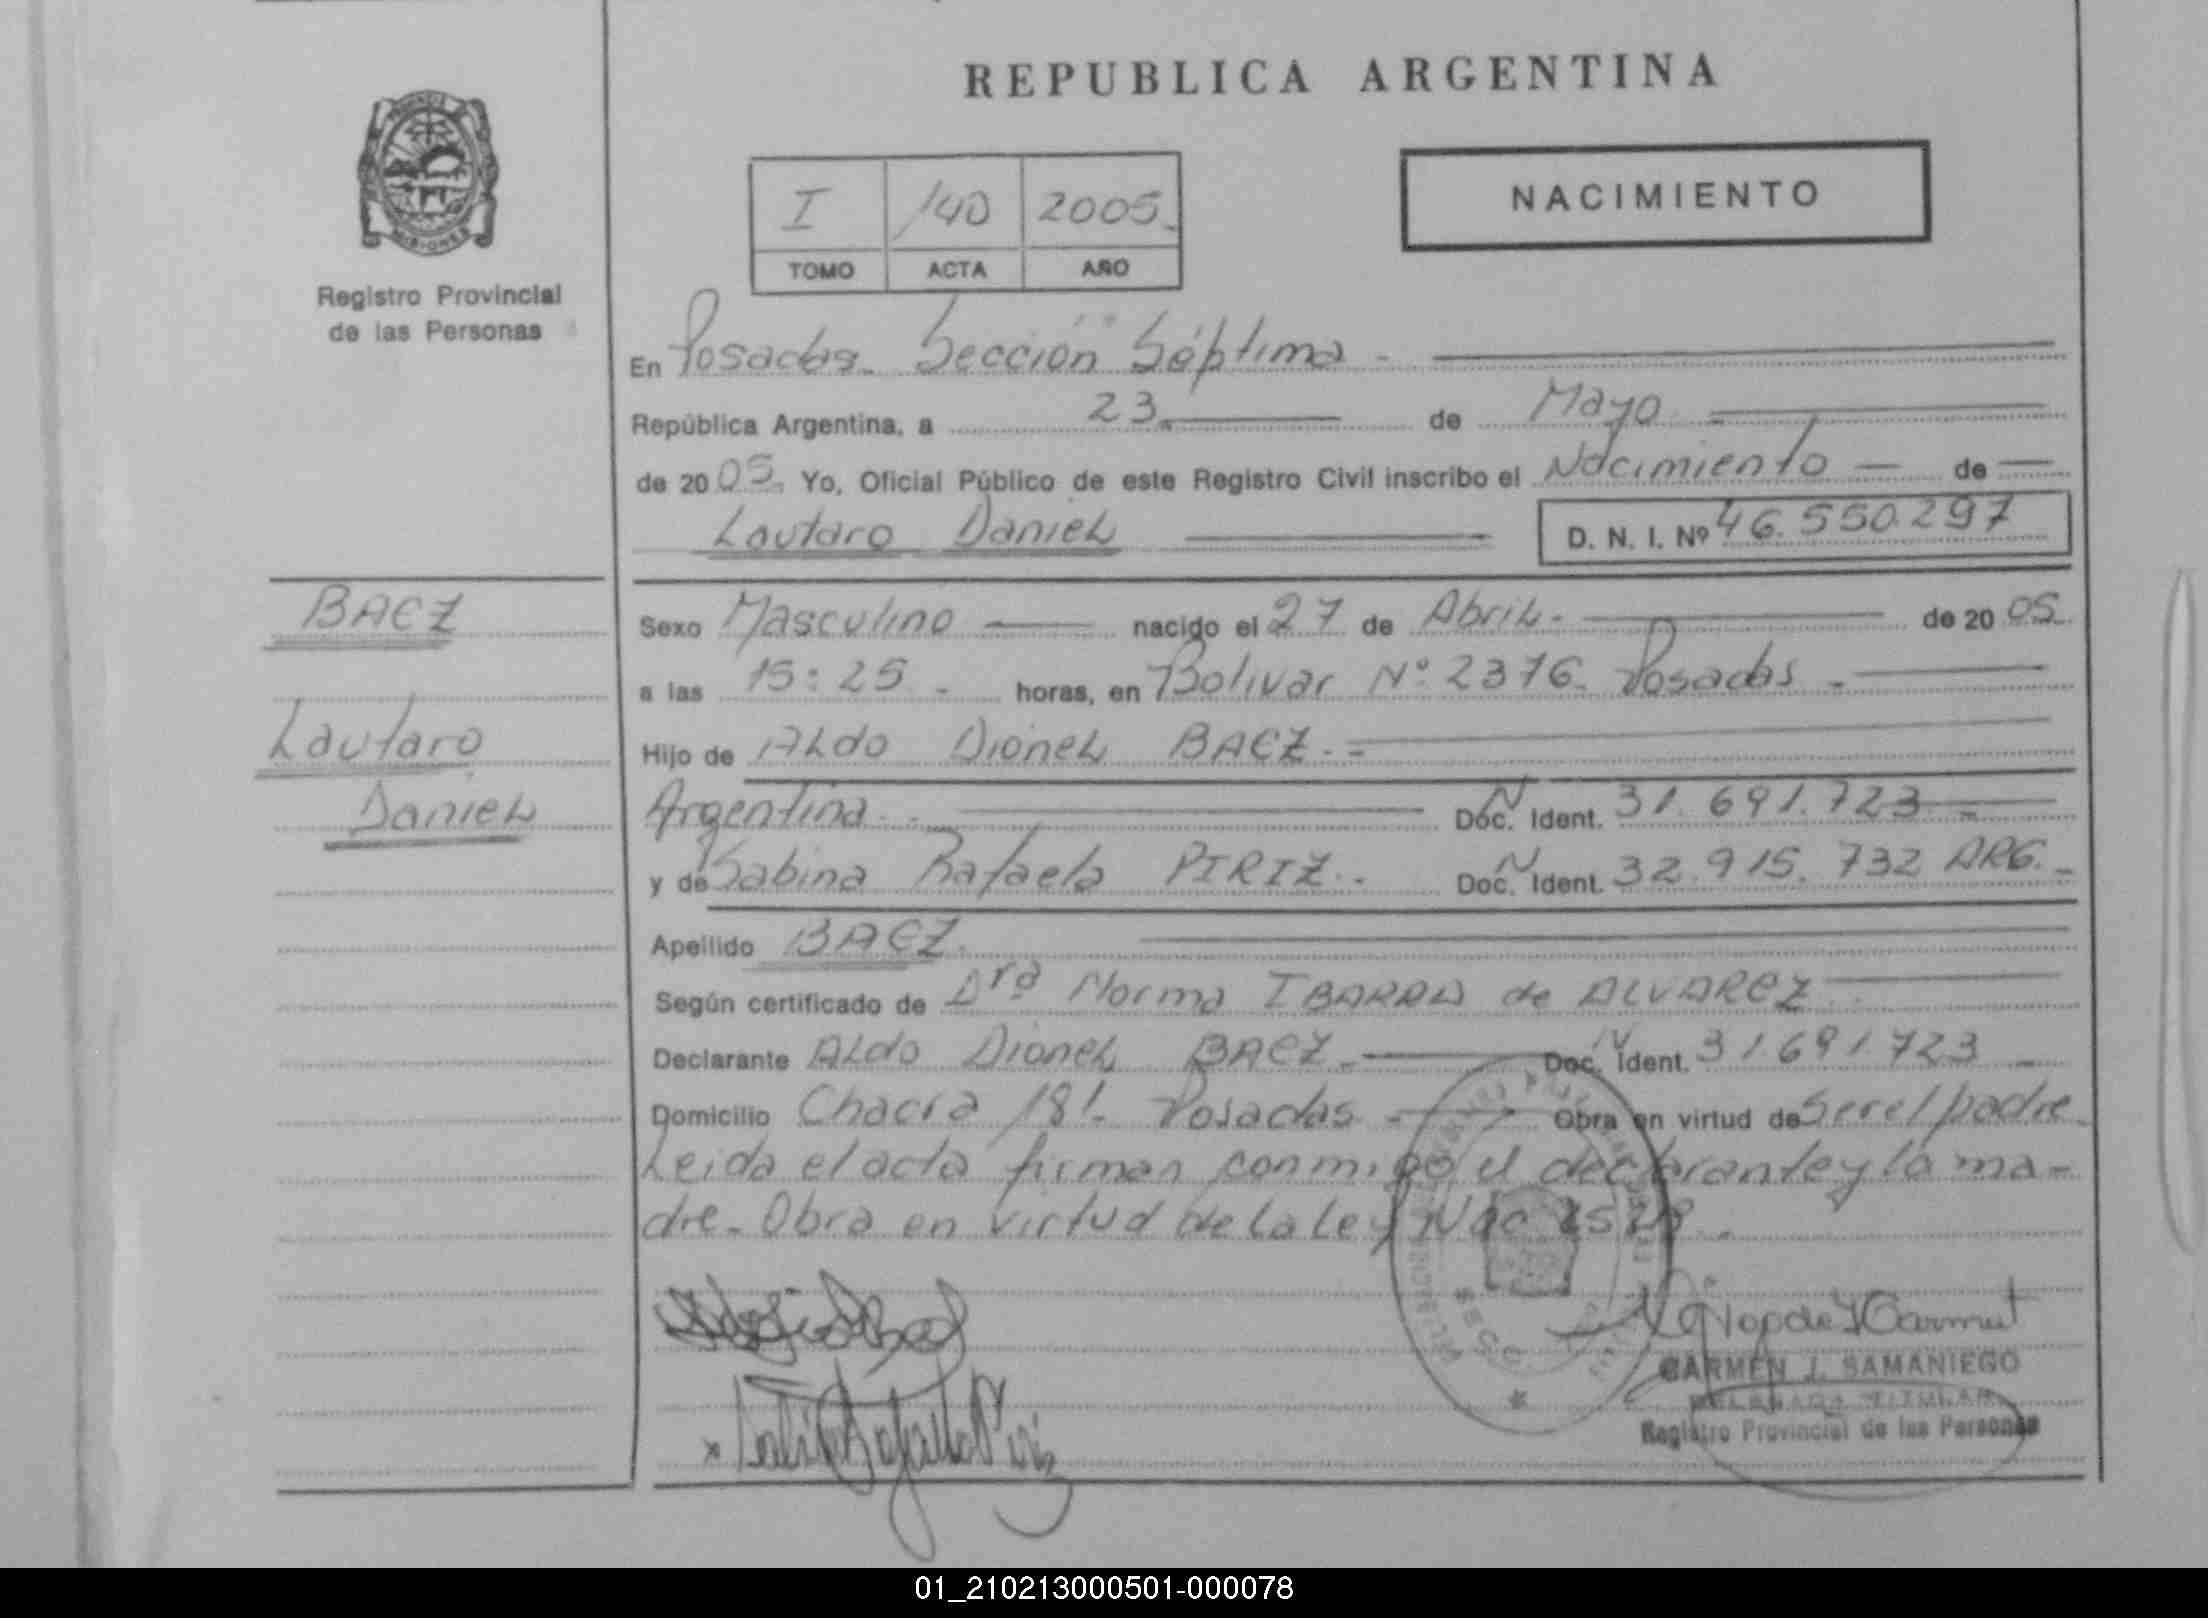 REPUBLICA ARGENTINA
MISIONES
Registro Provincial
de las Personas
I 140 2005
TOMO ACTA AÑO
NACIMIENTO
En Posadas. Sección Séptima
República Argentina, a 23 de Mayo
de 2005. Yo, Oficial Público de este Registro Civil inscribo el Nacimiento de
Lautaro Daniel D. N. I. Nº 46.550.297
BAEZ
Lautaro
Daniel
Sexo Masculino nacido el 27 de Abril de 2005
a las 15:25 horas, en Bolivar Nº 2376. Posadas
Hijo de Aldo Dionel BAEZ
Argentina Doc. N Ident. 31.691.723
y de Sabina Rafaela PIRIZ. Doc. N Ident. 32.915.732 ARG.
Apellido BAEZ.
Según certificado de Dra Norma IBARRA de ALVAREZ
Declarante Aldo Dionel BAEZ Doc. N Ident. 31.691.723
Domicilio Chacra 181. Posadas Obra en virtud de ser el padre
Leida el acta firman conmigo el declarante y la ma-
dre. Obra en virtud de la Ley Nac
CARMEN J. SAMANIEGO
DELEGADA TITULAR
Registro Provincial de las Personas
01_210213000501-000078